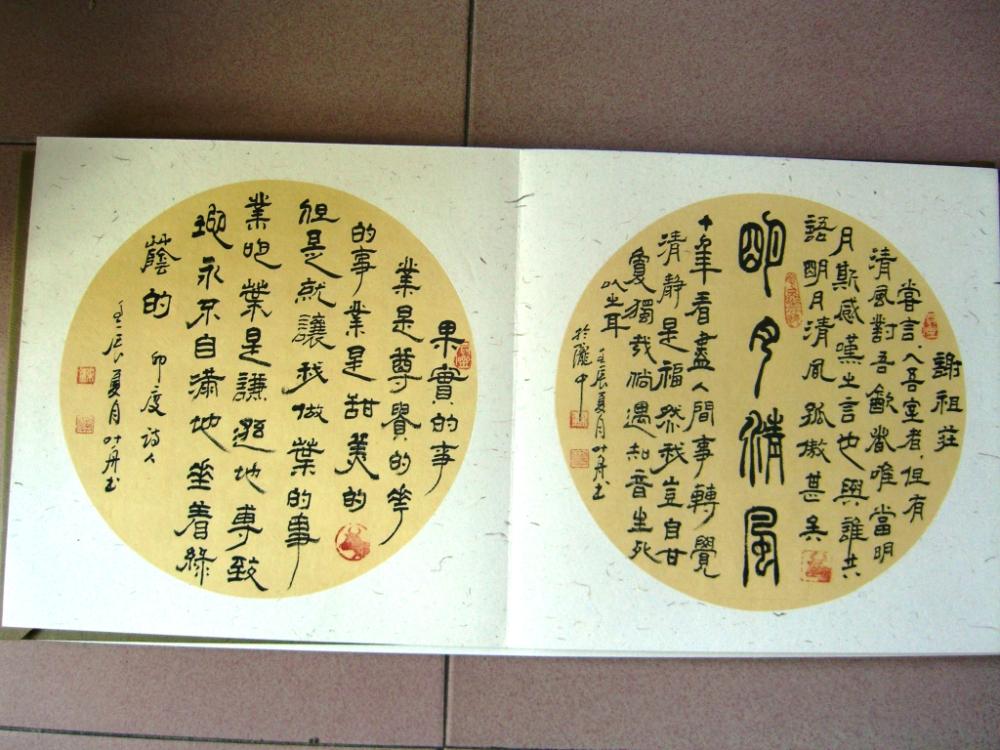 謝祖莊
嘗言入吾室者但有
清風對吾飲者唯當明
月斯感嘆之言也與誰共
語明月清風孤傲甚矣
明月清風
十年看盡人間事轉覺
清靜是福然我豈自甘
獨哉倘遇知音生死
以之耳
壬辰夏月叶丹书
於隴中
果實的事
業是尊貴的花
的事業是甜美的
但是就讓我做葉的事
業吧葉是謙遜地專致
地永不自滿地垂着綠
蔭的
印度诗人
壬辰夏月叶丹书